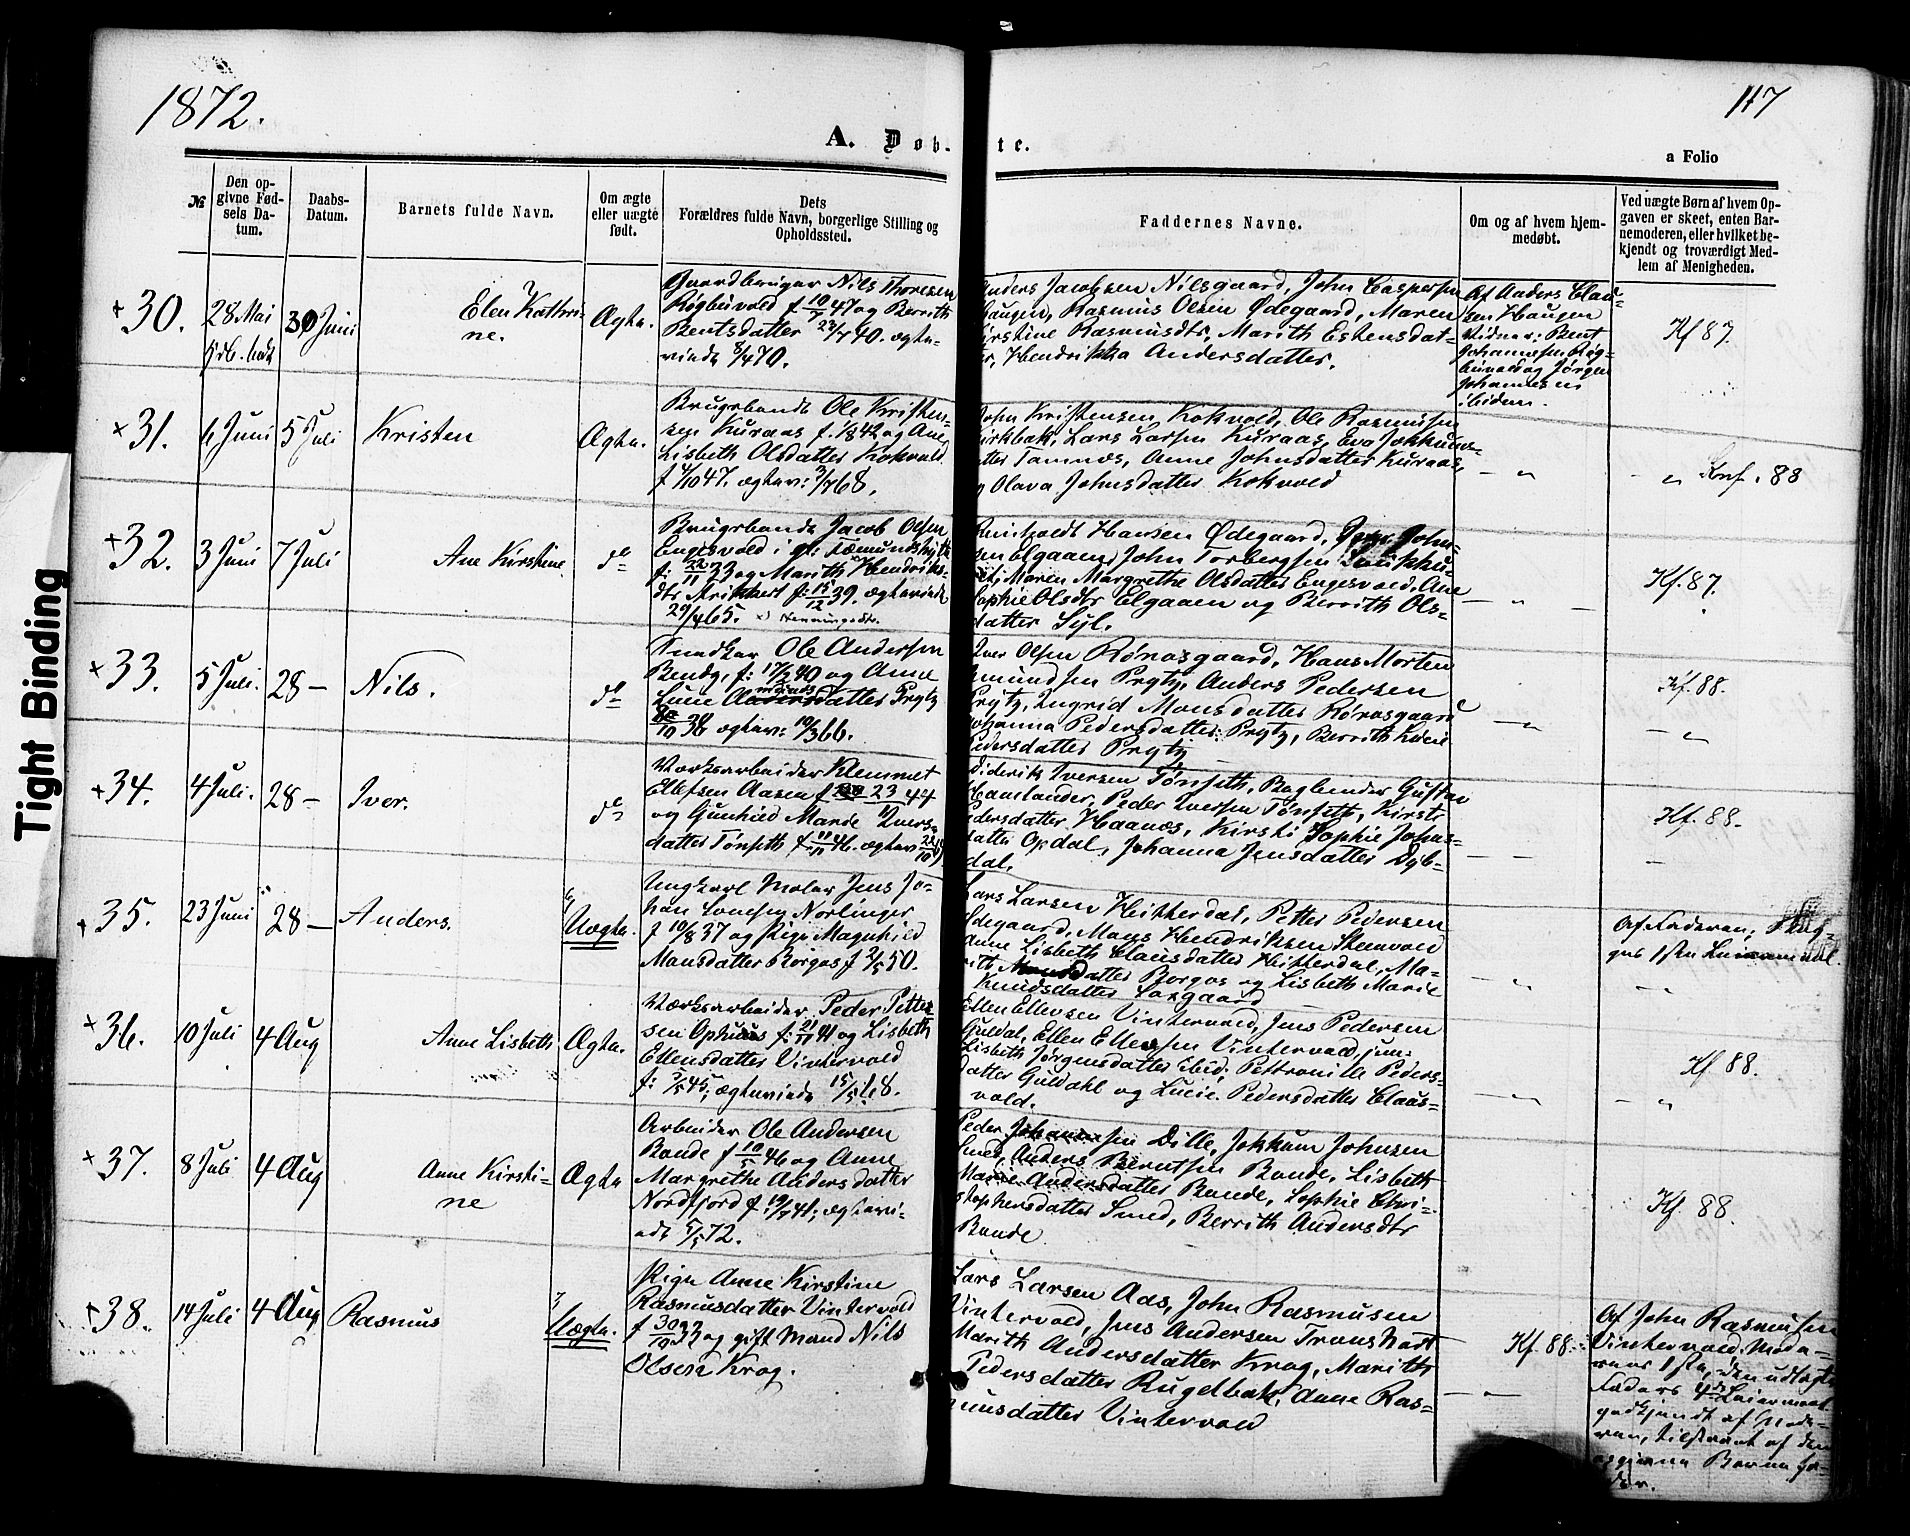 1872.
117
A. Døb- te.
a Folio
№
Den op-
givne Fød-
sels Da-
tum.
Daabs-
Datum.
Barnets fulde Navn.
Om ægte
eller uægte
født.
Dets
Forældres fulde Navn, borgerlige Stilling og
Opholdssted.
Faddernes Navne.
Om og af hvem hjem-
medøbt.
Ved uægte Børn af hvem Op-
gaven er skeet, enten Bar-
nemoderen, eller hvilket be-
kjendt og troværdigt Med-
lem af Menigheden.
+30.
28 Mai
30 Juni
Elen Kathri-
ne.
Ægte.
Gaardbruger Nils Thoresen
Røgbuvold f. 10/7 47 og Berrith
Bentsdatter 23/7 40. ægte-
vinde 8/4 70.
Anders Jacobsen Nilsgaard, John Caspersen
Haugen, Rasmus Olsen Ødegaard, Maren
Kirstine Rasmusdtr, Marith Estensdat-
ter, Hendrikka Andersdatter.
Af Anders Clau-
sen Haugen
Vidner: Bent
Johannesen Røg-
buvold og Jørgen
Johannesen
ibidem.
Kf 87.
+31.
6 Juni
5 Juli
Kristen
Ægte.
Brugsbonde Ole Kristen-
sen Kuraas f. 1842 og Ane
Lisbeth Olsdatter Kokvold
f 4/10 47. ægtev: 3/7 68.
John Kristensen Kokvold, Ole Rasmusen
Kirkbak, Lars Larsen Kuraas, Eva Jokkums-
datter Tamnes, Anne Johnsdatter Kuraas,
og Olava Johnsdatter Kokvold
— „
- „ Konf. 88
+32.
3 Juni
7 Juli
Ane Kirstine
do
Brugsbonde Jacob Olsen
Engesvold i gl: Fæmundshytte
f: 22/11 33 og Marith x) Hendriks-
dtr Strikkert f: 15/12 39. ægtevinde
29/4 65. x) Henningsdtr.
Reinholdt Hansen Ødegaard, John-
sen Elgaaen, John Torbergsen
Maren Margrethe Olsdatter Engesvold, Ane
Sophie Olsdtr Elgaaen og Berrith Ols-
datter Syl.
— „ —
Kf. 87.
+33.
5 Juli.
28 —
Nils.
do
Snedker Ole Andersen
Bendg, f: 17/2 40 og Anne
Lucie Amundsdatter Prytz
/10 36 ægtev: 10/3 66.
Iver Olsen Rønosgaard, Hans Morten
Amundsen Prytz, Anders Pedersen
Prytz, Ingrid Monsdatter Rørosgaard
Johanna Pedersdatter Prytz, Berrith Lucie
Pedersdatter Prytz
— „
Kf. 88.
— „
+34.
4 Juli.
28 —
Iver.
do
Værksarbeider Klemmet
Ellefsen Aasen f 23 44
og Gunhild Marie Ivers-
datter Tønseth f 11/11 46. ægtev 22/10
Diderik Iversen Tønseth, Bogbinder Gustav
Haanlander, Peder Iversen Tønseth, Kirsti
Pedersdatter Haanæs, Kirsti Sophie Johns-
datter Opdal, Johanna Jensdatter Dyb-
dal.
— —
Kf. 88.
—
+35.
23 Juni
28 —
Anders.
Uægte.
Ungkarl Maler Jens Jo-
han Norlinger
f 10/8 37 og Pige Magnhild
Monsdatter Borgos f 2/5 50.
Lars Larsen Hitterdal, Petter Pedersen
Ødegaard, Mons Hendriksen Steenvold
Anne Lisbeth Clausdatter Hitterdal, Ma-
rith Monsdatter Borgos og Lisbeth Marie
Knudsdatter Saxgaard
— „
Af Faderen; Pi-
gens 1ste Leiermaal.
„
+36.
10 Juli
4 Aug
Anne Lisbeth
Ægte.
Værksarbeider Peder Petter-
sen Ophuus f: 21/11 41 og Lisbeth
Ellensdatter Vintervold
f: 5/5 45; ægtevinde 15/5 68.
Ellen Ellevsen Vintervold, Jens Pedersen
Guldal, Ellen Ellefsen Vintervold, jun;
Lisbeth Jørgensdatter Ibid; Pettronille Peders-
datter Guldahl og Lucie Pedersdatter Claus-
vold.
— „
Kf 88.
- „
+37.
8 Juli
4 Aug
Anne Kirsti-
ne
Ægte
Arbeider Ole Andersen
Bonde f 10/5 46 og Anne
Margrethe Andersdatter
Nordfjord f 19/7 41; ægtevi-
ede 5/5 72.
Peder Johansen Dille, Jokkum Johnsen
Smed, Anders Berntsen Bonde, Lisbeth
Marie Andersdatter Bonde, Sophie Chri-
stophersdatter Smed, Berrith Andersdtr
Bonde
Kf. 88.
+38.
14 Juli
4 Aug
Rasmus
Uægte.
Pige Anne Kirstine
Rasmusdatter Vintervold
f 30/10 32 og gift Mand Nils
Olsen Krog.
Lars Larsen Aas, John Rasmusen
Vintervold, Jens Andersen Tronshart
Marith Andersdatter Krog, Marith
Pedersdatter Rugelbak, Anne Ras-
musdatter Vintervold
— „
Kf. 88.
Af John Rasmusen
Vintervold. Mode-
rens 1ste, den udlagte
Faders 4de Leiermaal
godkjendt af Mode-
ren, tilstaaet af den
opgivne Barnefa-
der.
Tight Binding